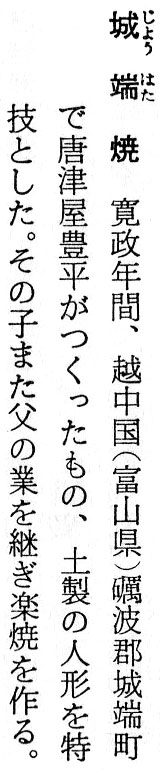 城端焼　寛政年間、越中国(富山県)礪波郡城端町
で唐津屋豊平がつくったもの、土製の人形を特
技とした。その子また父の業を継ぎ楽焼を作る。
じょう　はた